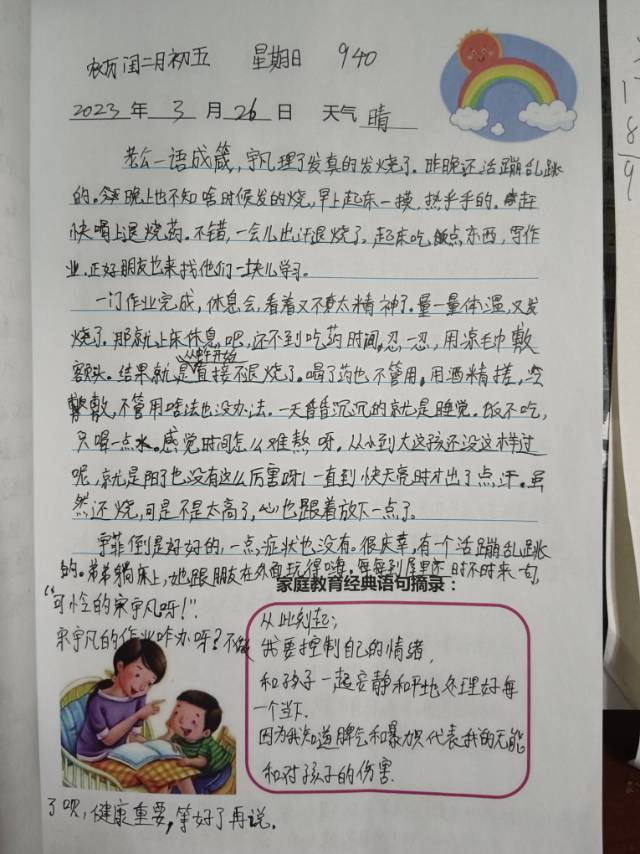 农历闰二月初五 星期日 940
2023年 3月 26日 天气 晴
老公一语成箴，宇凡理了发真的发烧了。昨晚还活蹦乱跳
的。晚上也不知啥时候发的烧，早上起床一摸，热乎乎的。赶
快喝上退烧药。不错，一会儿出汗退烧了。起床吃点东西，写作
业。正好朋友也来找他们一块儿学习。
一门作业完成，休息会，看着又不太精神了。量一量体温，又发
烧了。那就上床休息吧，还不到吃药时间，忍一忍，用凉毛巾敷
从中午开始
额头。结果就是直接不退烧了。喝了药也不管用，用酒精搓，
敷，不管用啥法也没办法。一天昏昏沉沉的就是睡觉。饭不吃，
只喝一点水。感觉时间怎么难熬呀。从小到大这孩还没这样过
呢，就是阳了也没有这么厉害呀！一直到快天亮时才出了点汗。虽
然还烧，可是不是太高了，心也跟着放下一点了。
宇菲倒是好好的，一点症状也没有。很庆幸，有一个活蹦乱跳
的。弟弟躺床上，她跟朋友在外面玩得嗨。每每到屋里来时不时来一句，
家庭教育经典语句摘录：
“可怜的宋宇凡呀！”
宋宇凡的作业咋办呀？不做
从此刻起：
我要控制自己的情绪，
和孩子一起安静和平地处理好每
一个当下.
因为我知道脾气和暴力只代表我的无能
和对孩子的伤害.
了呗，健康重要，等好了再说。